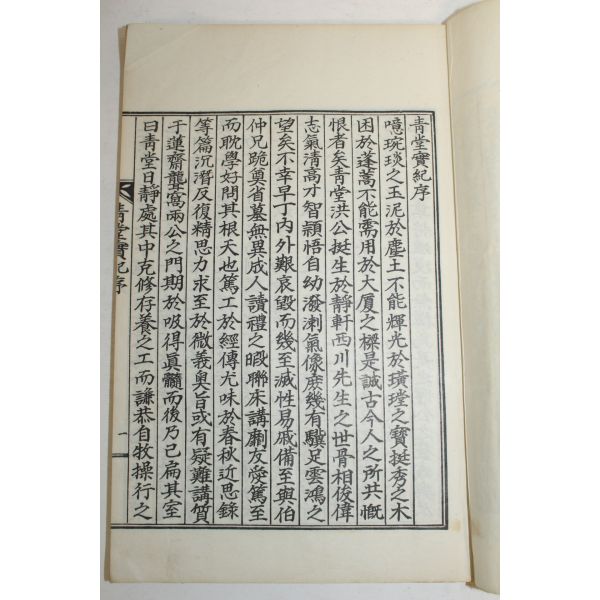 青堂實紀序
噫琬琰之玉泥於塵土不能輝光於璜瑝之寶挺秀之木
困於蓬蒿不能需用於大厦之樑是誠古今人之所共慨
恨者矣青堂洪公挺生於靜軒西川先生之世骨相俊偉
志氣淸高才智穎悟自幼潑溂氣像庶幾有驥足雲鴻之
望矣不幸早丁內外艱哀毀而幾至滅性易戚備至與伯
仲兄跪奠省墓無異成人讀禮之暇聯床講劘友愛篤至
而耽學好問其根天也篤工於經傳尤味於春秋近思錄
等篇沉潛反復精思力求至於微義奧旨或有疑難講質
于蓮齋聾窩兩公之門期於吸得眞髓而後乃已扁其室
曰靑堂日靜處其中克修存養之工而謙恭自牧操行之
靑堂實紀序
一